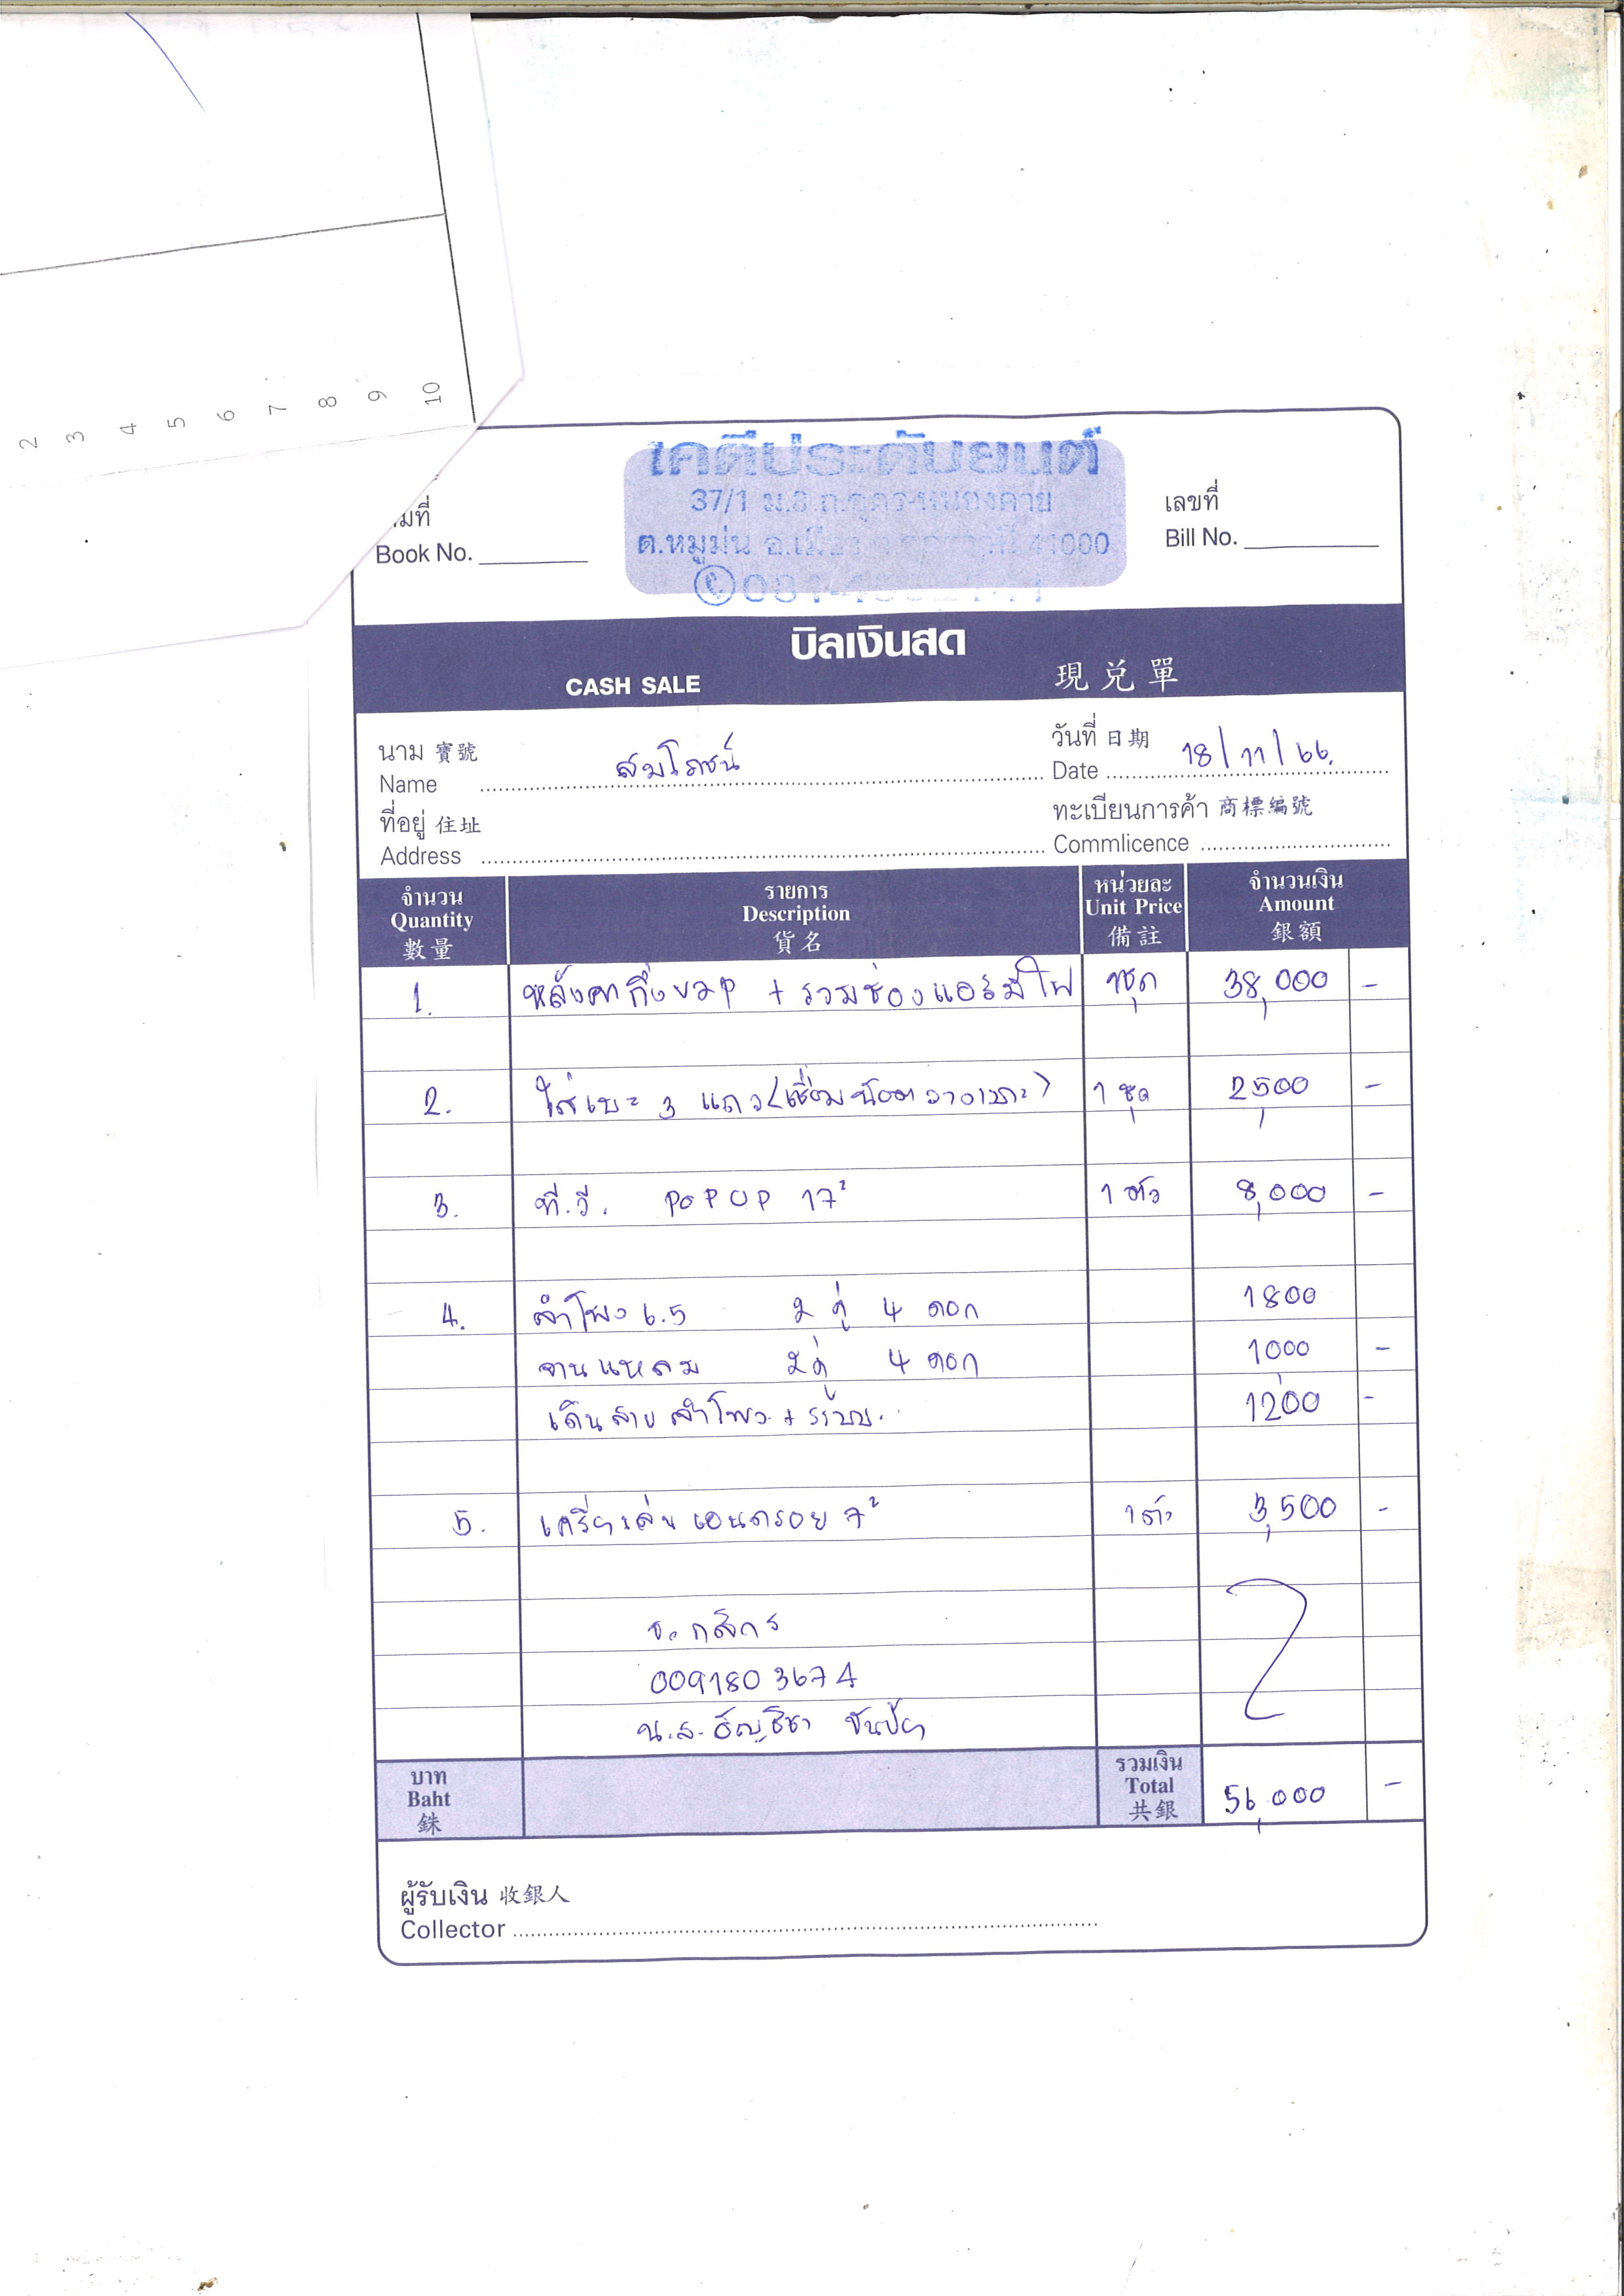 2 3 4 5 6 7 8 9 10
เคดีประดับยนต์
37/1 ม.8 ถ.อุดร-หนองคาย
ต.หมูม่น อ.เมือง 41000
มที่
Book No.
เลขที่
Bill No.
บิลเงินสด
CASH SALE 現兌單
นาม 寶號
Name สมโภชน์
วันที่ 日期
Date 18/11/66.
ที่อยู่ 住址
Address
ทะเบียนการค้า 商標編號
Commlicence
จำนวน รายการ หน่วยละ จำนวนเงิน
Quantity Description Unit Price Amount
數量 貨名 備註 銀額
1. หลังคา + รวมช่องแอร์มีไฟ 1ชุด 38,000 -
2. ใส่เบาะ 3 แถว (เชื่อมน๊อตวางเบาะ) 1 ชุด 2,500 -
3. ที.วี. POPUP 17" 1 ตัว 8,000 -
4. ลำโพง 6.5 2 คู่ 4 ดอก 1800
จานแหลม 2 คู่ 4 ดอก 1000 -
เดินสายลำโพง + ระบบ. 1200 -
5. เครื่องเล่นแอนดรอย 7" 1 ตัว 3,500 -
ธ. กสิกร
0091803674
น.ส. ธัญชิชา
บาท
Baht
銖
รวมเงิน
Total
共銀
56,000 -
ผู้รับเงิน 收銀人
Collector